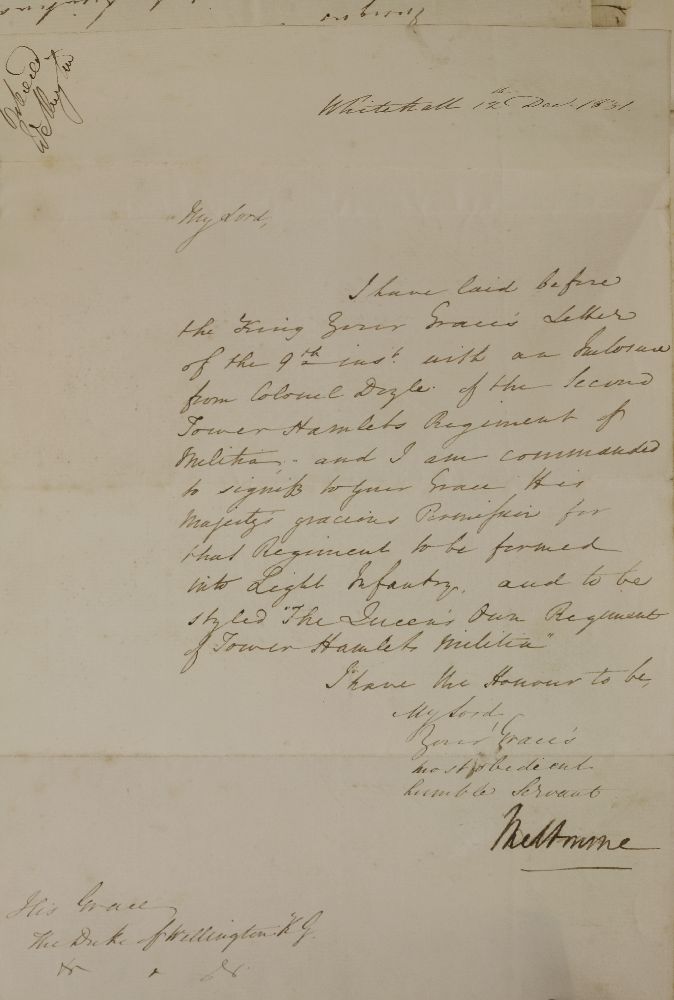 Whitehall 12th Decr. 1831.
My Lord,
I have laid before
the King Your Grace's Letter
of the 9th inst. with an Inclosure
from Colonel Doyle of the Second
Tower Hamlets Regiment of
Militia, and I am commanded
to signify to Your Grace His
Majesty's gracious Permission for
that Regiment to be formed
into Light Infantry, and to be
styled "The Queen's Own Regiment
of Tower Hamlets Militia"
I have the Honour to be,
My Lord,
Your Grace's
most obedient
humble Servant
Melbourne
His Grace
The Duke of Wellington K.G.
&c &c